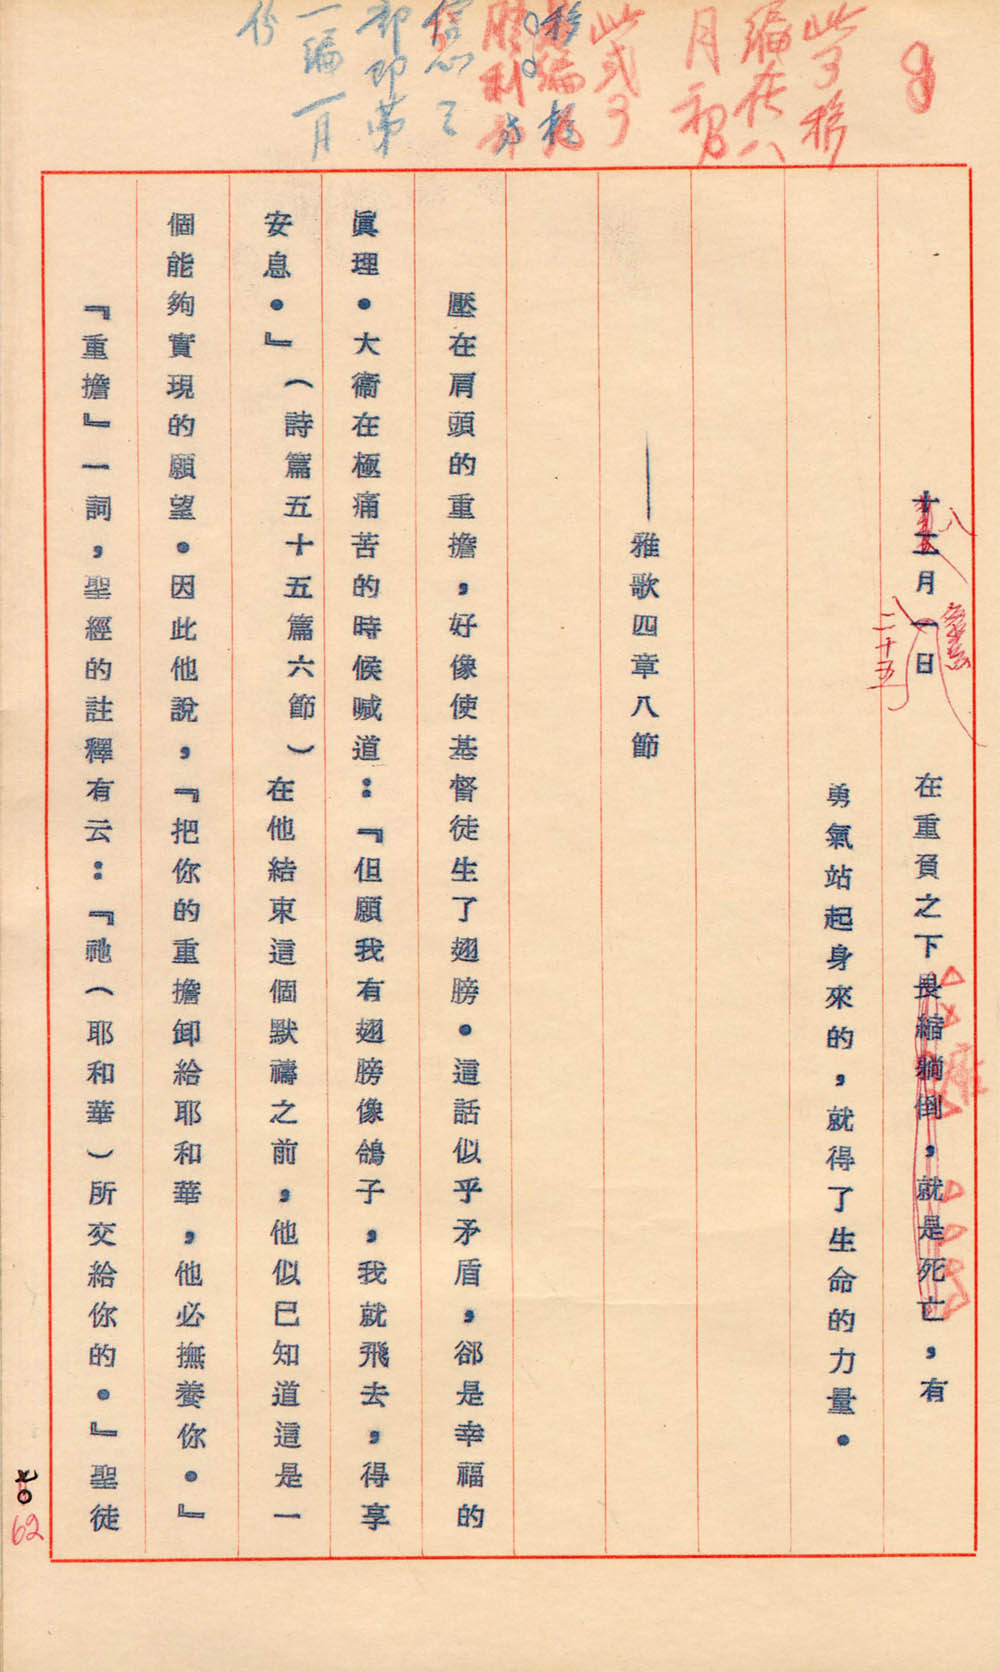 此可移
編在八
月初
此或可
信心之
部即第
一編一月
份
8
十二月一日 在重負之下畏縮躺倒,就是死亡,有
八
二十五
勇氣站起身來的,就得了生命的力量。
——雅歌四章八節
壓在肩頭的重擔,好像使基督徒生了翅膀。這話似乎矛盾,郤是幸福的
眞理。大衞在極痛苦的時候喊道:『但願我有翅膀像鴿子,我就飛去,得享
安息。』(詩篇五十五篇六節)在他結束這個默禱之前,他似已知道這是一
個能夠實現的願望。因此他說,『把你的重擔卸給耶和華,他必撫養你。』
『重擔』一詞,聖經的註釋有云:『祂(耶和華)所交給你的。』聖徒
62